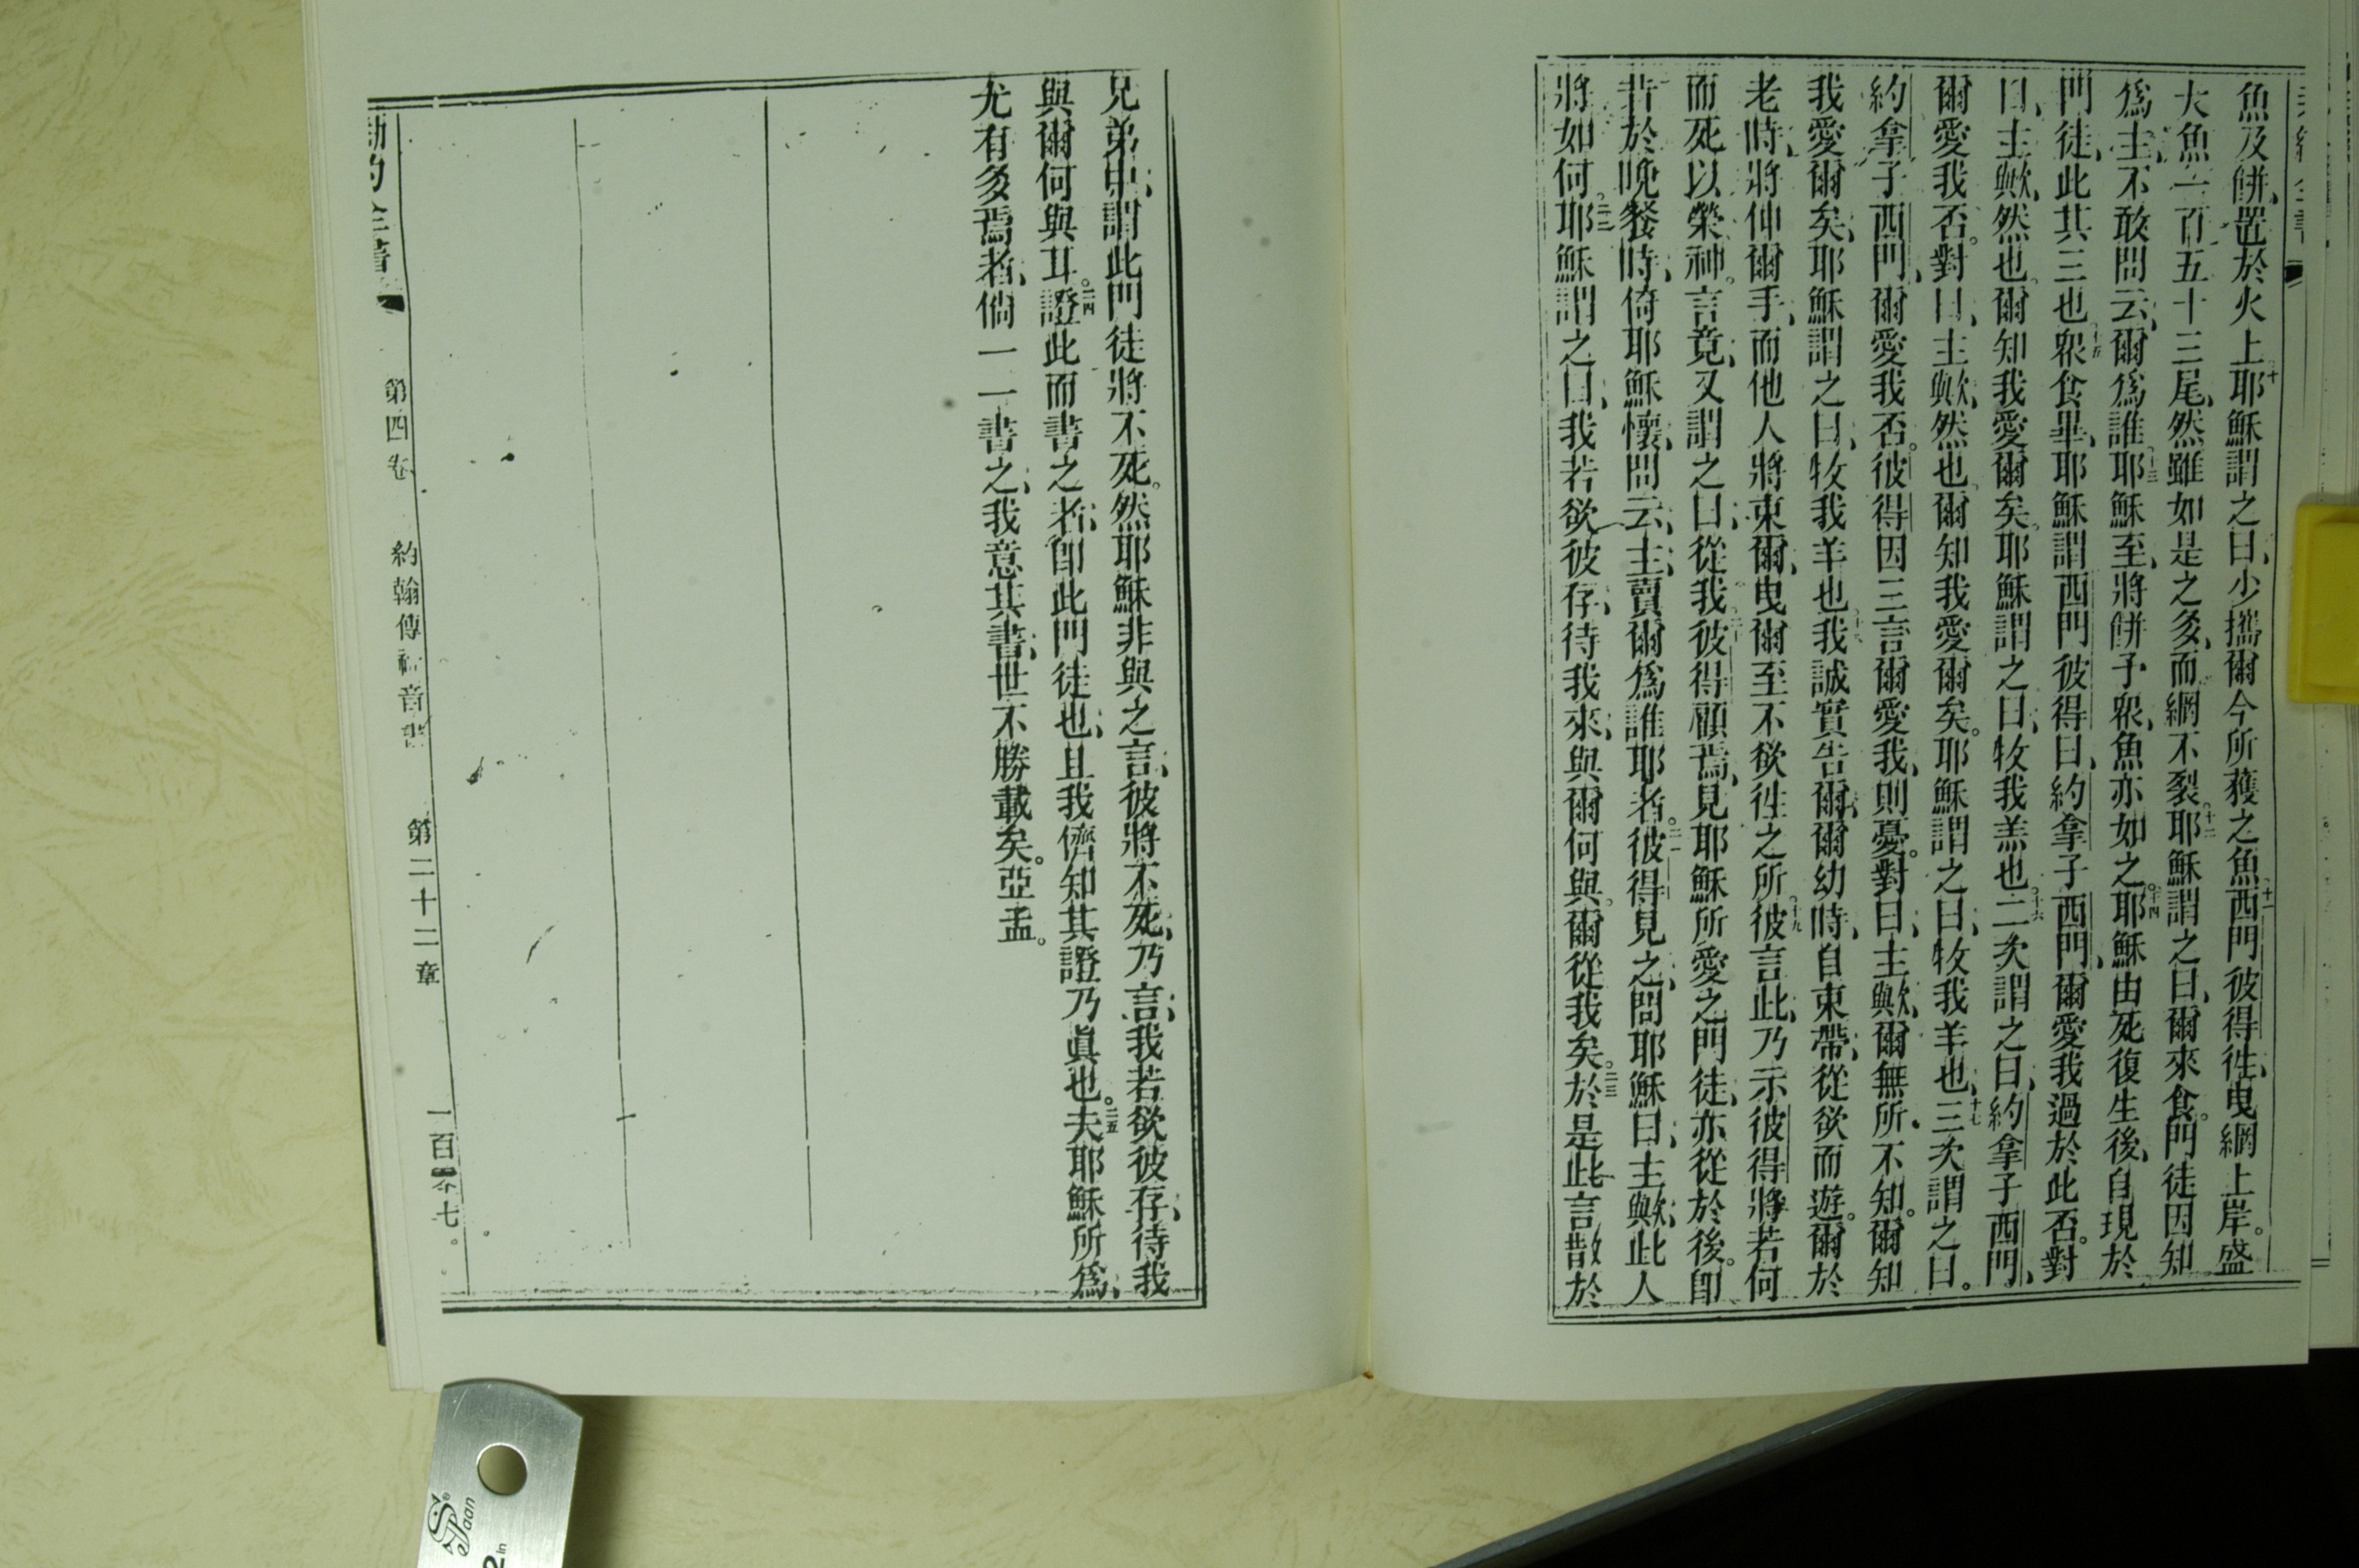 魚及餠、置於火上。十耶穌謂之曰、少攜爾今所獲之魚。十一西門彼得徃、曳網上岸。盛
大魚一百五十三尾、然雖如是之多、而網不裂。十二耶穌謂之曰、爾來食。門徒因知
爲主、不敢問云、爾爲誰。十三耶穌至、將餠予眾、魚亦如之。十四耶穌由死復生後、自現於
門徒、此其三也。十五眾食畢、耶穌謂西門彼得曰、約拿子西門、爾愛我過於此否。對
曰、主歟、然也。爾知我愛爾矣。耶穌謂之曰、牧我羔也。十六二次謂之曰、約拿子西門、
爾愛我否。對曰、主歟、然也。爾知我愛爾矣。耶穌謂之曰、牧我羊也、十七三次謂之曰。
約拿子西門、爾愛我否。彼得因三言爾愛我、則憂。對曰、主歟、爾無所不知。爾知
我愛爾矣、耶穌謂之曰、牧我羊也。十八我誠實告爾、爾幼時、自束帶、從欲而遊。爾於
老時、將伸爾手、而他人將束爾、曳爾至不欲徃之所。十九彼言此、乃示彼得將若何
而死以榮神。言竟、又謂之曰、從我。二十彼得顧焉、見耶穌所愛之門徒、亦從於後。卽
昔於晚餐時、倚耶穌懷、問云、主、賣爾爲誰耶者。二一彼得見之、問耶穌曰、主歟、此人
將如何。二二耶穌謂之曰、我若欲彼存、待我來、與爾何與。爾從我矣。二三於是此言散於
兄弟中、謂此門徒將不死。然耶穌非與之言、彼將不死、乃言、我若欲彼存、待我
與爾何與耳。二四證此而書之者、卽此門徒也、且我儕知其證乃眞也。二五夫耶穌所爲、
尤有多焉者、倘一一書之、我意其書、世不勝載矣。亞孟。
第四卷 約翰傳福音書 第二十二章
Spaan
2in